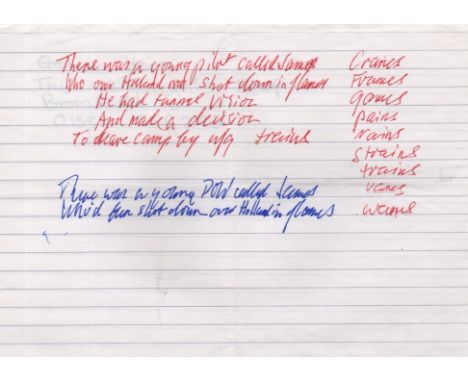 There was a young pilot called James
Who over Holland was shot down in flames
He had tunnel vision
And made a decision
To leave camp by u/g trains
Cranes
Frames
games
pains
rains
strains
trains
vanes
There was a young POW called James
Who'd been shot down over Holland in flames